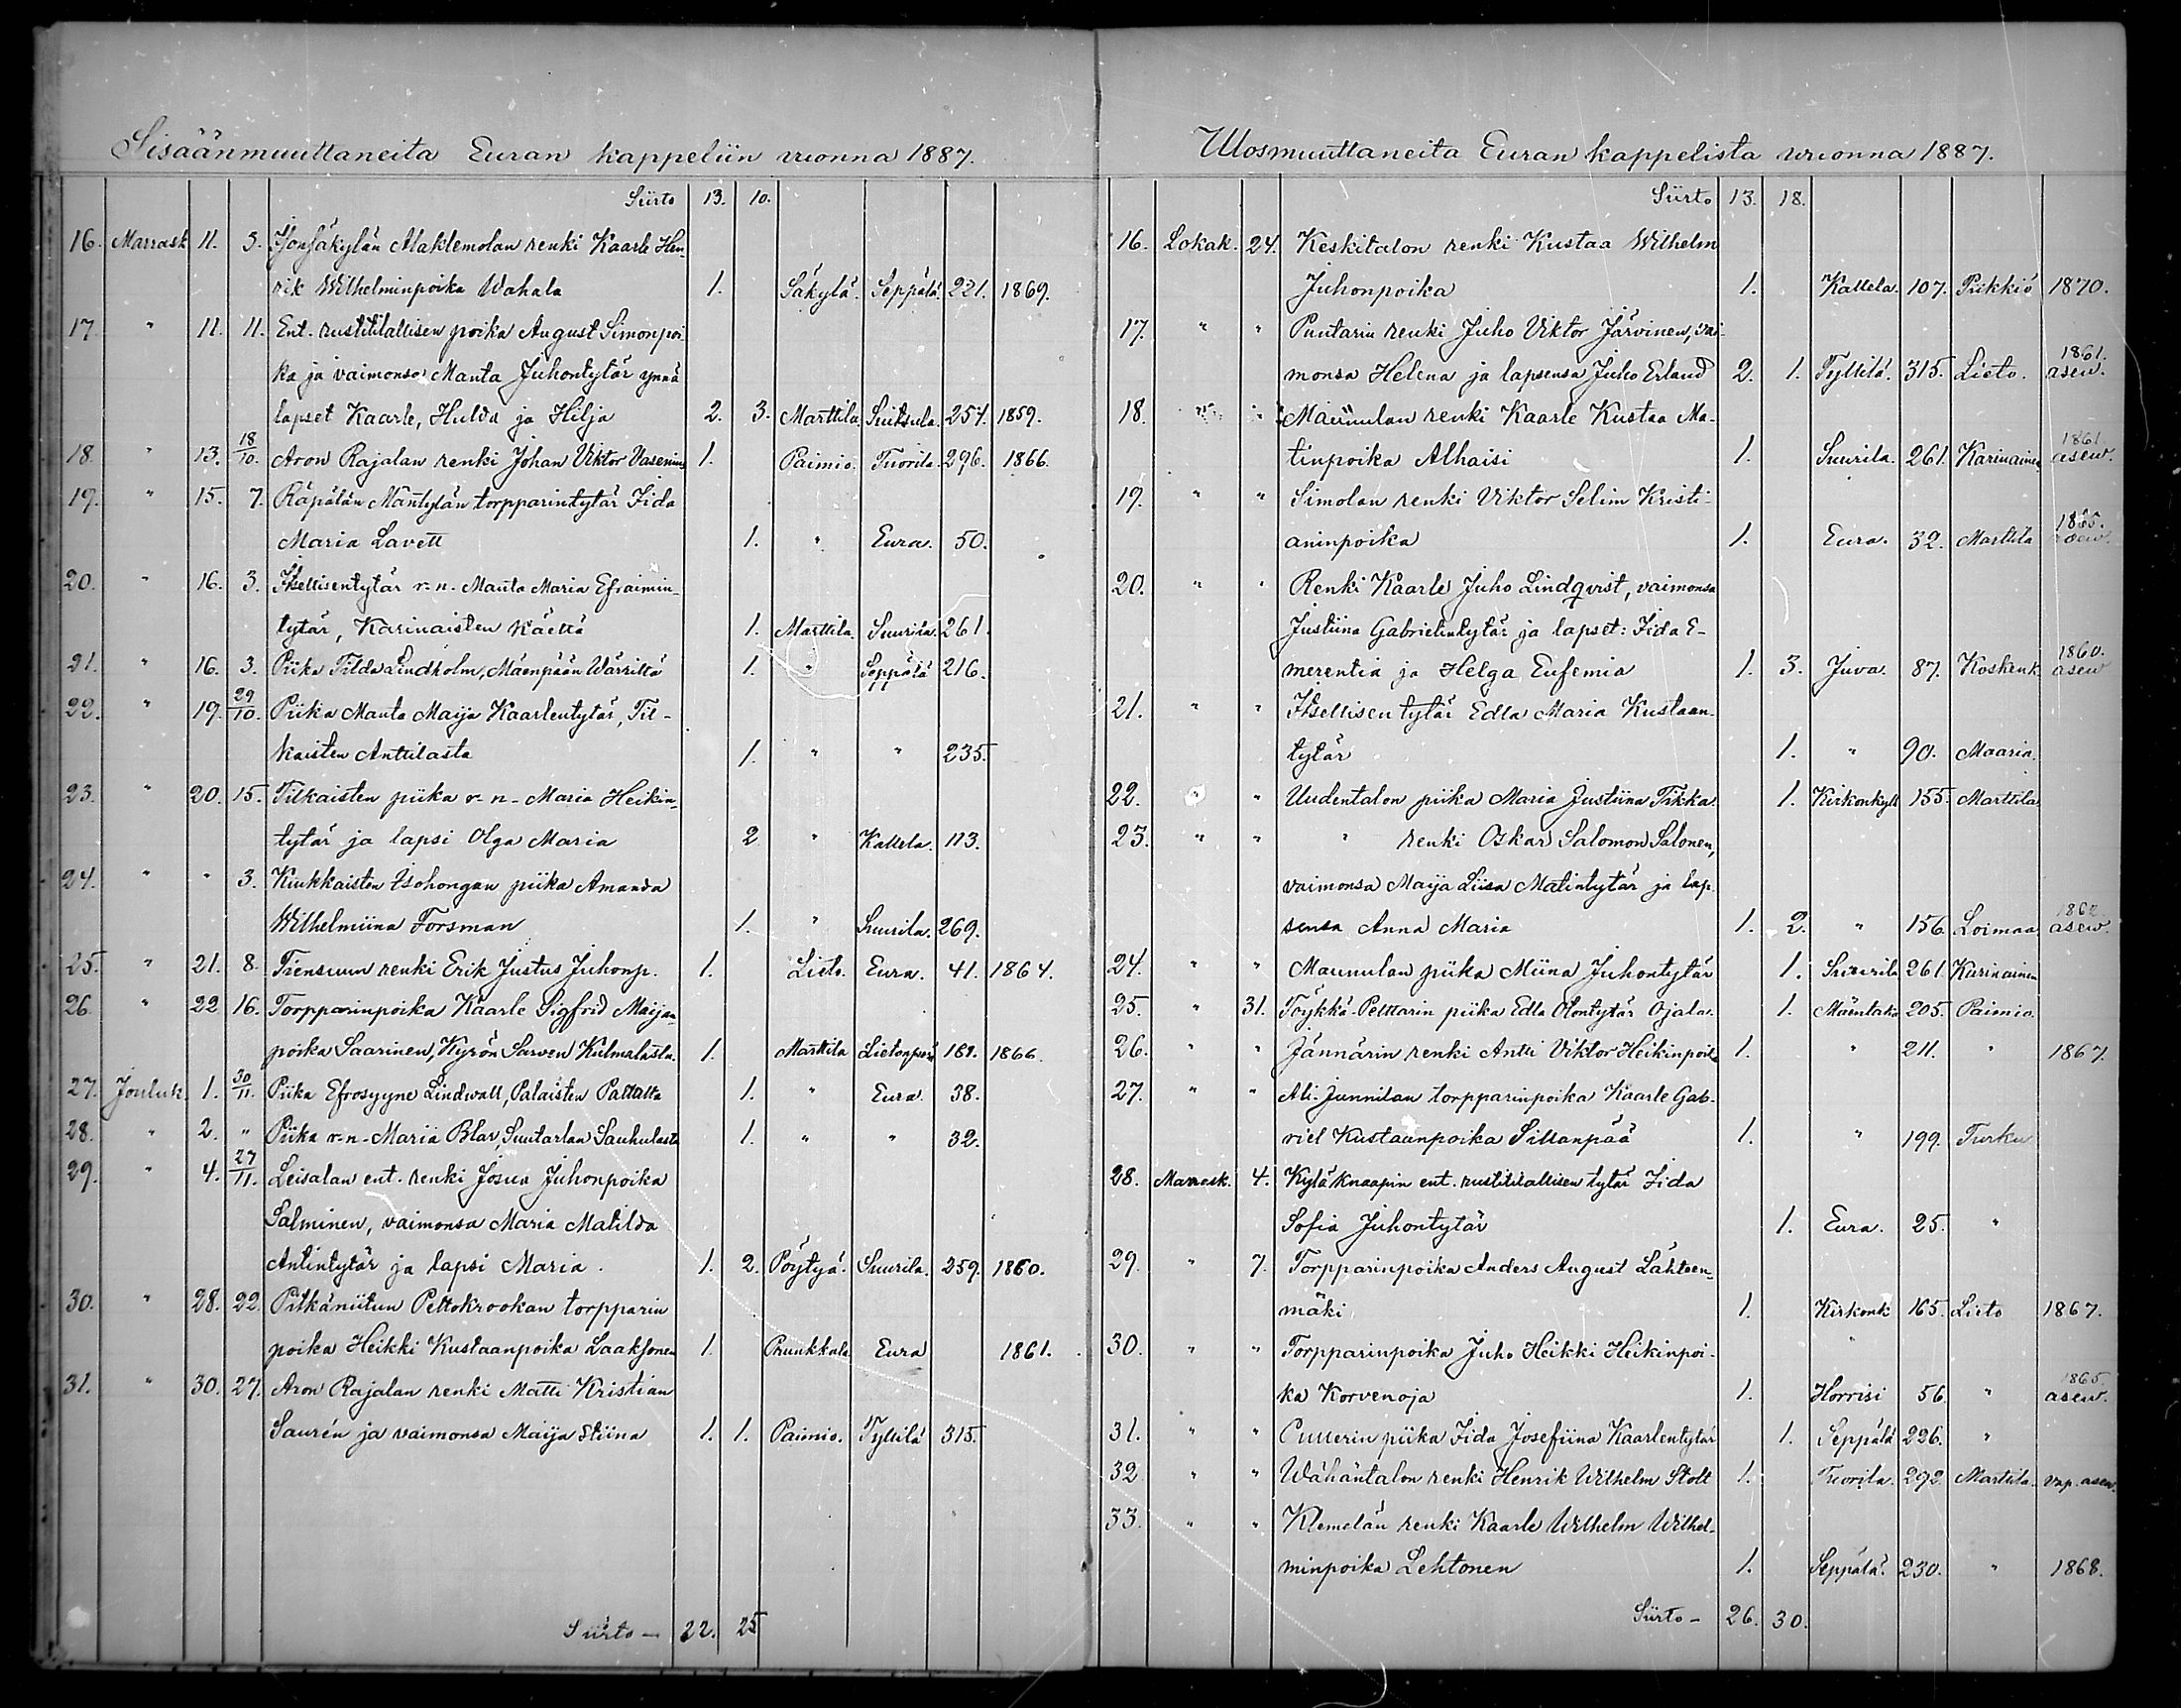 Sisäänmuuttaneita Euran kappeliin vuonna 1887.
Siirto 13. 10.
16. Marrask 11. 3. Isonsäkylän Maklemolan renki Kaarle Hen-
rik Wilhelminpoika Wahala 1. Säkylä. Seppälä. 221. 1869.
17. " 11. 11. Ent. rustitilallisen poika August Simonpoi-
ka ja vaimonsa Manta Juhontytär ynnä
lapset Kaarle, Hulda ja Hilja 2. 3. Marttila. Suitsula. 254. 1859.
18. " 13. 18/10. Aron Rajalan renki Johan Viktor Vasenius 1. Paimio. Tuorila. 296. 1866.
19. " 15. 7. Räpälän Mäntylän torpparintytär Iida
Maria Lavett 1. " Eura. 50.
20. " 16. 3. Itsellisentytär r.n. Manta Maria Efraimin-
tytär, Karinaisten 1. Marttila Suurila. 261.
21. " 16. 3. Piika Tilda Lindholm, Mäenpään Wärriltä 1. " Seppälä 216.
22. " 19. 29/10. Piika Manta Maija Kaarlentytär, Til-
kaisten Anttilasta 1. " " 235.
23. " 20. 15. Tilkaisten piika r-n- Maria Heikin-
tytär ja lapsi Olga Maria 2 " Kattela. 113.
24. " " 3. Kinkkaisten Isohongan piika Amanda
Wilhelmiina Forsman 1. " Suurila. 269.
25. " 21. 8. Tiensuun renki Erik Justus Juhonp. 1. Lieto. Eura. 41. 1864.
26. " 22 16. Torpparinpoika Kaarle Sigfrid Maijan-
poika Saarinen, Kyrön Sarven Kulmalasta. 1. Marttila 1866.
27. Jouluk. 1. 30/11. Piika Efrosyyne Lindwall, Palaisten Paltalta 1. " Eura. 38.
28. " 2. " Piika r-n- Maria Blav, Suutarlan Sauhulasta 1. " " 32.
29. " 4. 27/11. Leisalan ent. renki Josua Juhonpoika
Salminen, vaimonsa Maria Matilda
Antintytär ja lapsi Maria. 1. 2. Pöytyä. Suurila. 259. 1860.
30. " 28. 22. Pitkäniitun Peltokrookan torpparin
poika Heikki Kustaanpoika Laaksonen 1. Prunkkala Eura 1861.
31. " 30. 27. Aron Rajalan renki Matti Kristian
Saurén ja vaimonsa Maija Stiina 1. 1. Paimio. Tyllilä 315.
Siirto — 22. 25
Ulosmuuttaneita Euran kappelista vuonna 1887.
Siirto 13. 18.
16. Lokak. 24. Keskitalon renki Kustaa Wilhelm
Juhonpoika 1. Kattela. 107. Piikkiö 1870.
17. " " Puntarin renki Juho Viktor Järvinen, vai-
monsa Helena ja lapsensa Juho Erland 2. 1. Tyllilä. 315. Lieto. 1861. asew.
18. " " Maunulan renki Kaarle Kustaa Ma-
tinpoika Alhaisi 1. Suurila. 261. Karinainen 1861. asew.
19. " " Simolan renki Viktor Selim Kristi-
aninpoika 1. Eura. 32. Marttila asew.
20. " " Renki Kaarle Juho Lindqvist, vaimonsa
Justiina Gabrielintytär ja lapset: Iida E-
merentia ja Helga Eufemia 1. 3. Juva. 87. Koskenk. 1860. asew
21. " " Itsellisen tytär Edla Maria Kustaan-
tytär 1. " 90. Maaria.
22. " " Uudentalon piika Maria Justiina Tikka. 1. Kirkonkylä 155. Marttila
23. " " " renki Oskar Salomon Salonen,
vaimonsa Maija Liisa Matintytär ja lap-
sensa Anna Maria 1. 2. " 156 Loimaa 1862 asew.
24. " " Maunulan piika Miina Juhontytär 1. Suurila 261. Karinainen
25. " 31. Töykkä-Pelttarin piika Edla Otontytär Ojala. 1. Mäentaka 205. Paimio.
26. " " Jännärin renki Antti Viktor Heikinpoika 1. " 211. " 1867.
27. " " Ali-Junnilan torpparinpoika Kaarle Gab-
riel Kustaanpoika Sillanpää 1. " 199. Turku
28. Marrask. 4. Kylä Knaapin ent. rustitilallisen tytär Iida
Sofia Juhontytär 1. Eura. 25. "
29. " 7. Torpparinpoika Anders August Lähteen-
mäki 1. Kirkonk 165. Lieto 1867.
30. " " Torpparinpoika Juho Heikki Heikinpoi-
ka Korvenoja 1. Horrisi 56 " 1865. asew.
31. " " Putterin piika Iida Josefiina Kaarlentytär 1. Seppälä 226. "
32 " " Wähäntalon renki Henrik Wilhelm Stolt 1. Tuorila. 292. Marttila. vap. asew.
33. " " Klemelän renki Kaarle Wilhelm Wilhel-
minpoika Lehtonen 1. Seppälä. 230. " 1868.
Siirto - 26. 30.